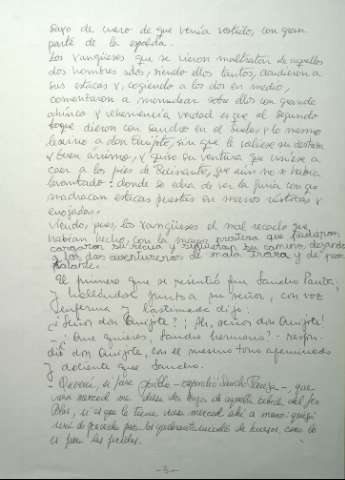 sayo de cuero de que venía vestido, con gran
parte de la espalda.
Los yangüeses que se vieron maltratar de aquellos
dos hombres solos, siendo ellos tantos, acudieron a
sus estacas y, cogiendo a los dos en medio,
comenzaron a menudear sobre ellos con grande
ahínco y vehemencia verdad es que al segundo
toque dieron con Sancho en el suelo, y lo mesmo
le avino a don Quijote, sin que le valiese su destreza
y buen ánimo, y quiso su ventura que viniese a
caer a los pies de Rocinante, que aún no se había
levantado: donde se echa de ver la furia con que
machacan estacas puestas en manos rústicas y
enojadas.
Viendo, pues, los yangüeses el mal recado que
habían hecho, con la mayor presteza que pudieron,
cargaron su recua y siguieron su camino, dejando
a los dos aventureros de mala traza y de peor
talante.
El primero que se resintió fue Sancho Panza,
y hallándose junto a su señor, con voz
enferma y lastimada dijo:
¡Señor don Quijote? ¡Ah, señor don Quijote!
- ¿Que quieres, Sancho hermano? - respon-
dió don Quijote, con el mesmo tono afeminado
y doliente que Sancho.
- Querría, si fuese posible - respondió Sancho Panza -, que
vuesa merced me diese dos tragos de aquella bebida del feo
Blas, si es que la tiene vuesa merced ahí a mano: quizá
será de provecho para los quebrantamientos de huesos como lo
es para las feridas.
-3-